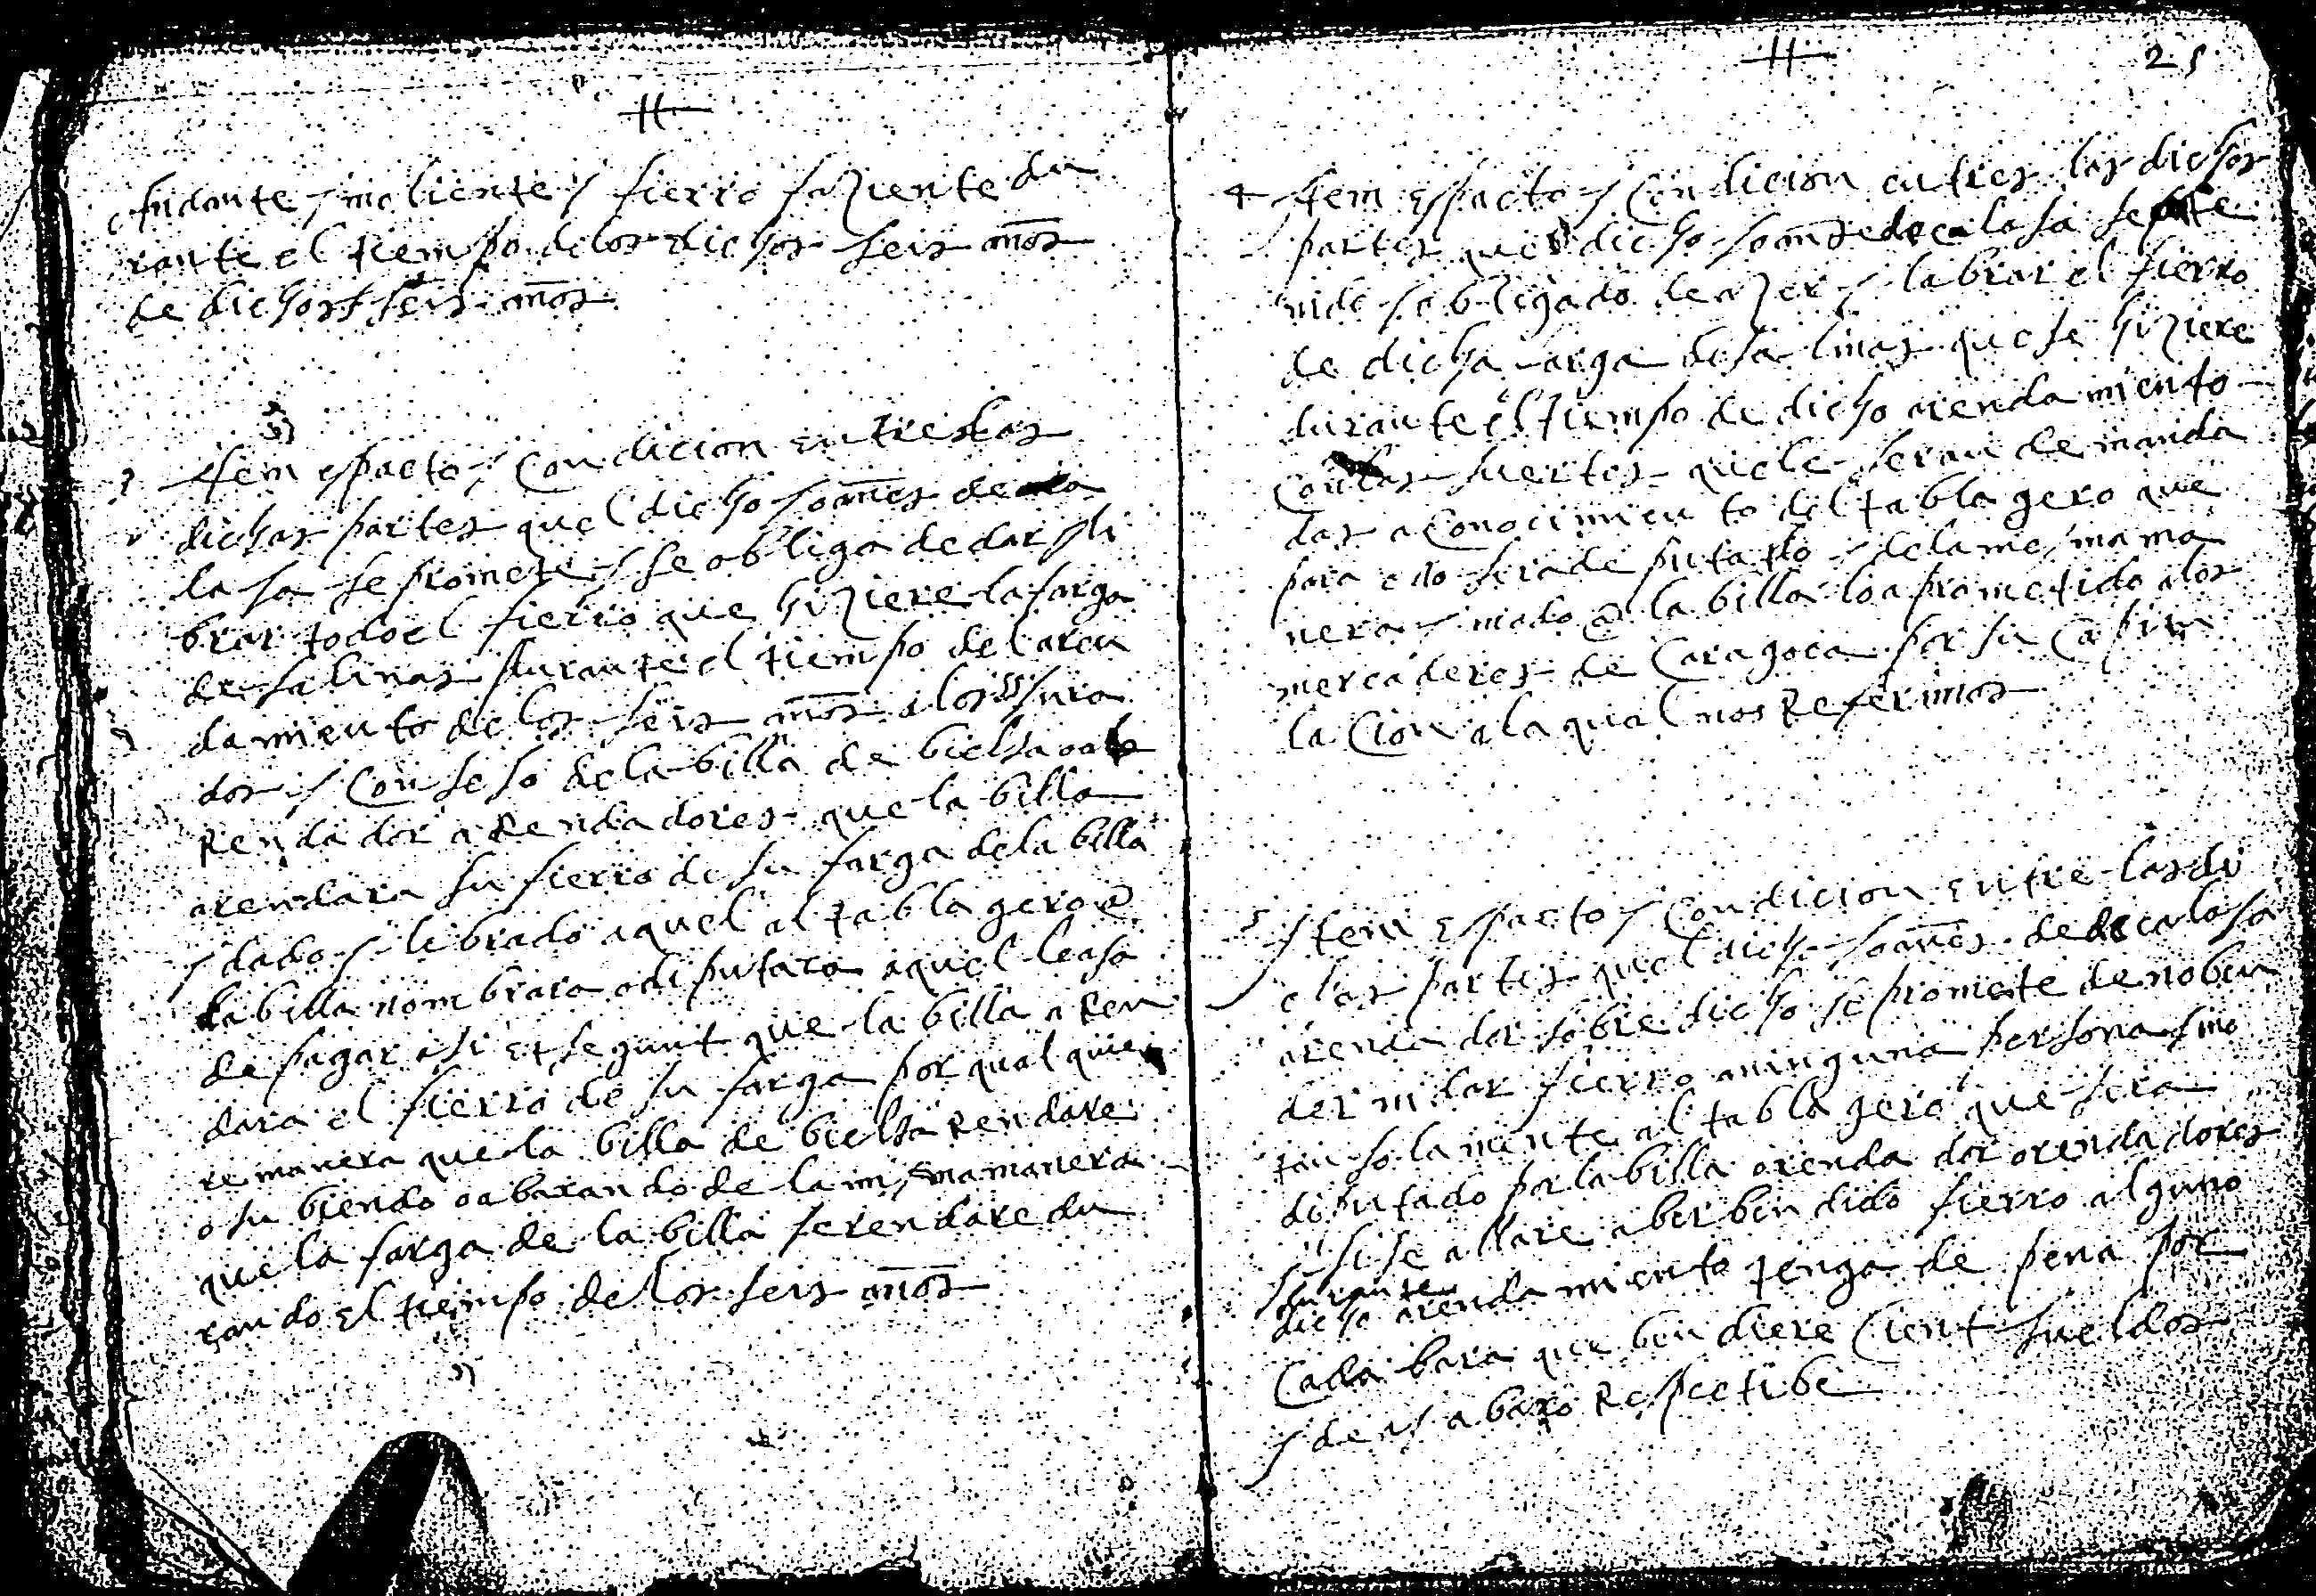 andante y moliente y fierro faziente du
rante el tiempo de los dichos seis años
de dichos seis años
3 Item es pacto y condicion entre las
dichas partes quel dicho Joanes de
lasa se promete y se obliga de dar y li
brar todo el fierro que hiziere la farga
de salinas durante el tiempo del aren
damiento de los seis años a los jura
dos y consejo de la billa de bielsa o a
Rendador aRendadores que la billa
arendara su fierro de su farga de la billa
y dado y librado aquel al tablagero q
la billa nombrara o diputara aquel le asa
de pagar asi et segunt que la billa aRen
dara el fierro de su farga por qualquie
re manera que la billa de bielsa Rendare
o subiendo o abaxando de la misma manera
que la farga de la billa se rendare du
rando el tiempo de los seis años
25
4 Item es pacto y condicion entres las dichos
partes quel dicho Joanes de calasa se
nido y obligado de azer y labrar el fierro
de dicha farga de salinas que se hiziere
durante el tiempo de dicho arendamiento
con las suertes que le seran demanda
das a conocimiento del tablagero que
para ello sera deputado y de la mesma ma
nera y modo q la billa lo a prometido a los
mercaderes de Caragoca por su capitu
lacion a la qual nos Referimos
5 Item es pacto y condicion entre las di
chas partes quel dicho Joanes de calasa
arendador sobredicho se promete de no ben
der ni dar fierro a ninguna persona sino
tan solamente al tablagero que sera
diputado por la billa arendador o rendadores
y si se allare aber bendido fierro alguno
durante
dicho arendamiento tenga de pena por
cada bara que bendiere cient sueldos
y de ay abaxo Respectibe